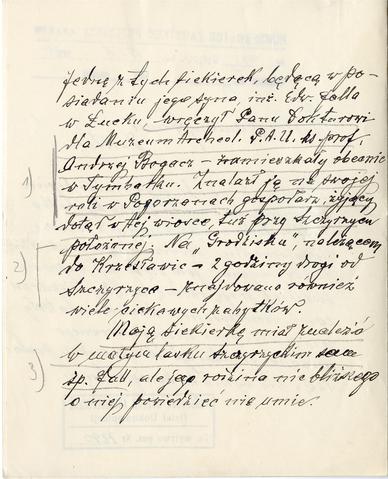 Jedną z tych siekierek, będącą w po-
siadaniu jego syna, inż. Edw. Falla
w Łucku wręczył Panu Doktorowi
dla Muzeum Archeol. P.A.U. ks. prof.
Andrzej Bogacz – zamieszkały obecnie
1) w Tymbarku. Znalazł ją na swojej
roli w Pogorzanach gospodarz, żyjący
dotąd w tej wiosce, tuż przy Szczyrzycu
położonej. Na „Grodzisku”, należącem
2) do Krzesławic – 2 godziny drogi od
Szczyrzyca – znajdowano również
wiele ciekawych zabytków.
Moją siekierkę miał znaleźć
w małym lasku szczyrzyckim sam
3) śp. Fall, ale jego rodzina nic bliższego
o niej powiedzieć nie umie.